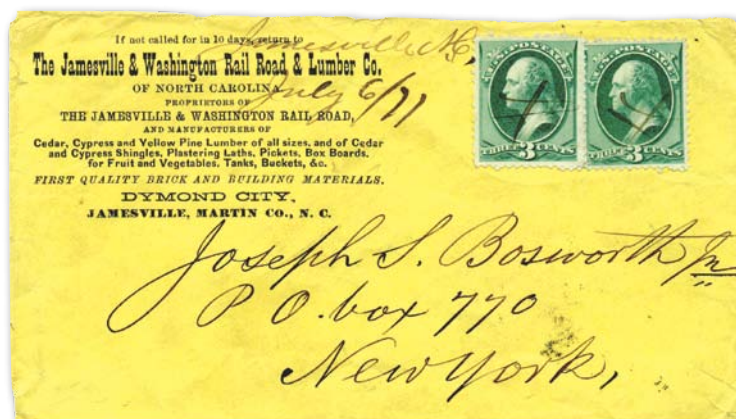 If not called for in 10 days, return to
The Jamesville & Washington Rail Road & Lumber Co.
OF NORTH CAROLINA,
PROPRIETORS OF
THE JAMESVILLE & WASHINGTON RAIL ROAD,
AND MANUFACTURERS OF
Cedar, Cypress and Yellow Pine Lumber of all sizes, and of Cedar
and Cypress Shingles, Plastering Laths, Pickets, Box Boards,
for Fruit and Vegetables, Tanks, Buckets, &c.
FIRST QUALITY BRICK AND BUILDING MATERIALS.
DYMOND CITY,
JAMESVILLE, MARTIN CO., N. C.
Jamesville NC,
July 6/77
U.S. POSTAGE
THREE 3 CENTS
U.S. POSTAGE
THREE 3 CENTS
Joseph S. Bosworth Jr
P O. box 770
New York,